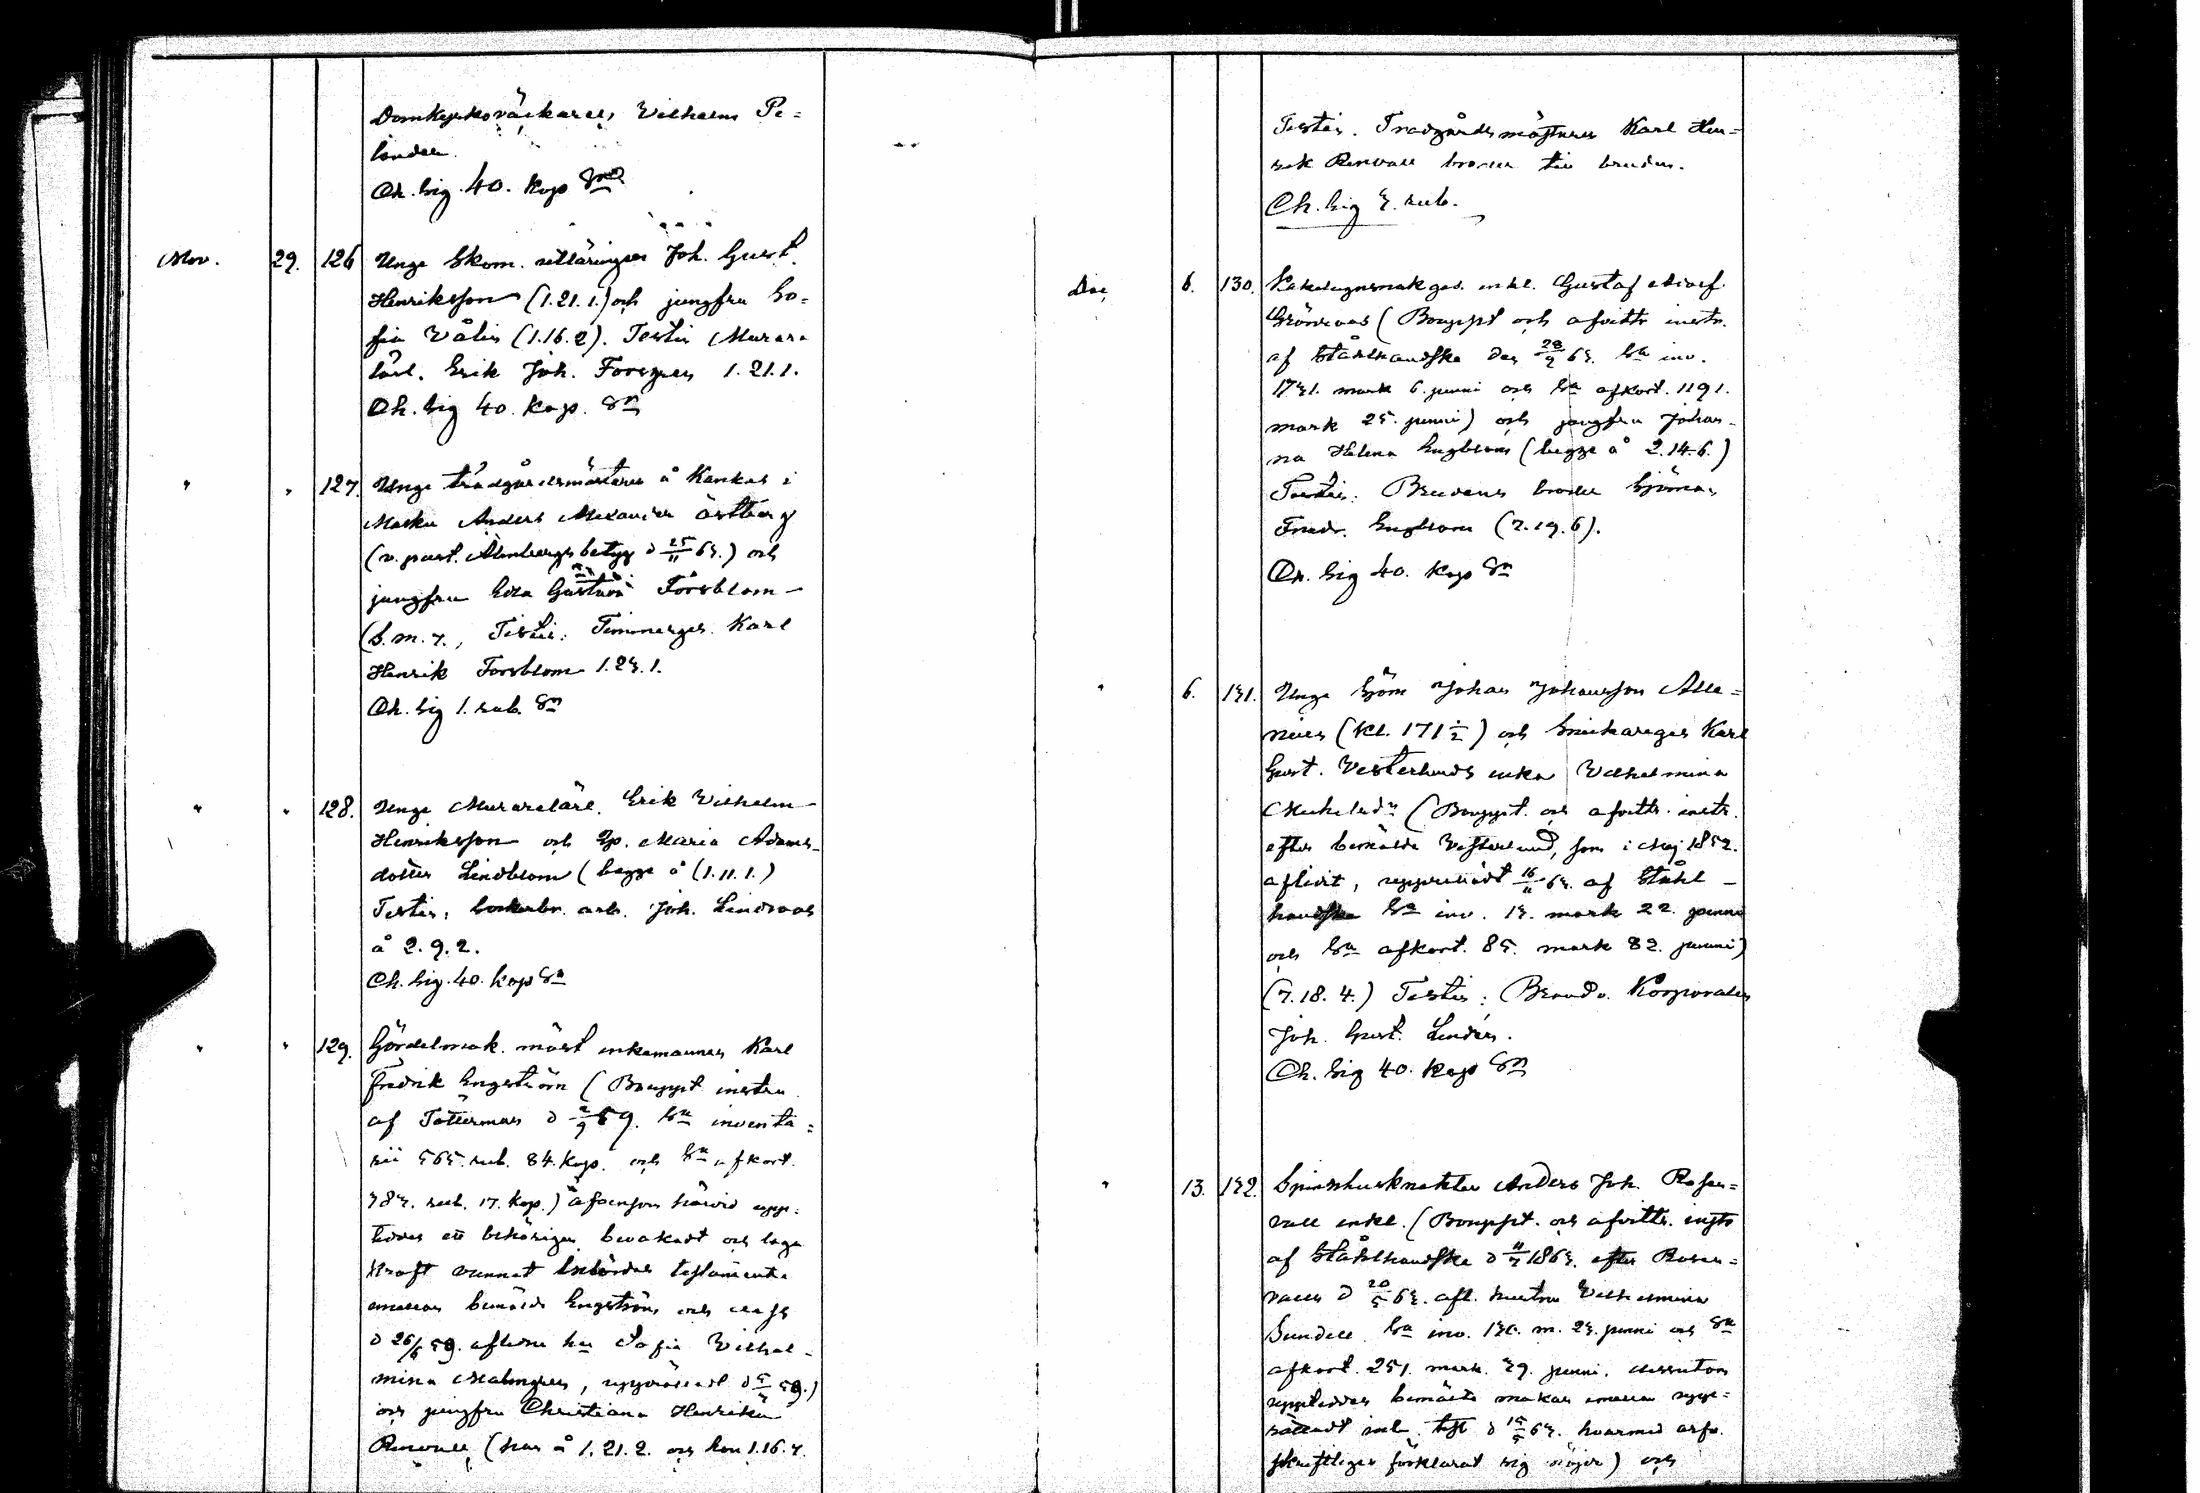 Domkyrkoväckaren Wilhelm Pe=
lander.
Ch. Sig. 40. Kop Sr
Nov. 29. 126 Unge Skom. utläringen Joh. Gust.
Henriksson (1.21.1.) och jungfru So=
fia Wålin (1.16.2). Testis Murare
lärl. Erik Joh. Forsgren 1.21.1.
Ch. Sig 40. Kop. Sr
" " 127. Unge trädgårdsmästaren å Kankas i
Masku Anders Alexander Östberg
(v. past. Almbergs betyg d 25/11 63.) och
jungfru Eva Gustava Forsblom
(S.m.7., Testis: Timmerges. Karl
Henrik Forsblom 1.23.1.
Ch. Sig 1. rub. Sr
" " 128. Unge Murarelärl. Erik Wilhelm
Henriksson och Maria Adams-
dotter Lindblom (begge å (1.11.1.)
Testis: Sockerbr. arb. Joh. Lindroos
å 2.9.2.
Ch. Sig. 40. kop Sr
" " 129. Gördelmak. mäst enkemannen Karl
Fredrik Engström (Bouppt. instru
af Tötterman d 2/9 59. Sa inventa=
rii 565. rub. 84. Kop. och Sa afkort.
383. rub. 17. Kop.) äfvensom härvid upp=
teddes ett behörigen bevakadt och laga
kraft vunnet inbördes testamente
emellan bemälde Engström och dess
d 26/6 59. aflidne hu Sofia Wilhel=
mina Malmgren, upprättadt d 59.)
och jungfru Christiana Henrika
Renvall (han å 1.21.2. och hon 1.16.7.
Testis. Trädgårdsmästaren Karl Hen=
rik Renvall broder till bruden.
Ch. Sig 3. rub.
Dec. 6. 130. Kakelugnsmakges. enkl. Gustaf Adolf
Grönroos (Bouppt och afvittr. instr.
af Stålhandske den 28/9 63. Sa inv.
1731. mark 6. penni och Sa afkort. 1191.
mark 25. penni) och jungfru Johan-
na Helena Engblom (begge å 2.14.6.)
Testis: Brudens broder Sjöman
Fredr. Engblom (7.19.6).
Ch. Sig 40. Kop Sr
" 6. 131. Unge Sjöm Johan Johansson Ale=
nius (Kl. 171 1/2) och Snickareges Karl
Gust. Vesterlunds enka Wilhelmina
Mickelsdr (Bouppt. och afvittr. instr.
efter bemälde Vesterlund, som i Maj 1852.
aflidit, upprättadt 16/11 63. af Stål-
handske Sa inv. 13. mark 22. penni
och Sa afkort. 85. mark 82. penni)
(7.18.4.) Testis: Brandv. Korporalen
Joh. Gust. Lindén.
Ch. Sig 40. Kop Sr
" 13. 132. Spinnhusknekten Anders Joh. Rosen=
vall enkl. (Bouppt. och afvittr. instr
af Stålhandske d 1863. efter Rosen=
valls d 20/5 63. afl. hustru Wilhelmina
Sundell Sa inv. 130. m. 23. penni och Sa
afkort. 251. mark. 39. penni. dessutom
uppteddes bemälte makar emellan upp=
rättadt inb. test d 15/5 63. hvarmed arfv.
skriftligen förklarat sig nöjde) och